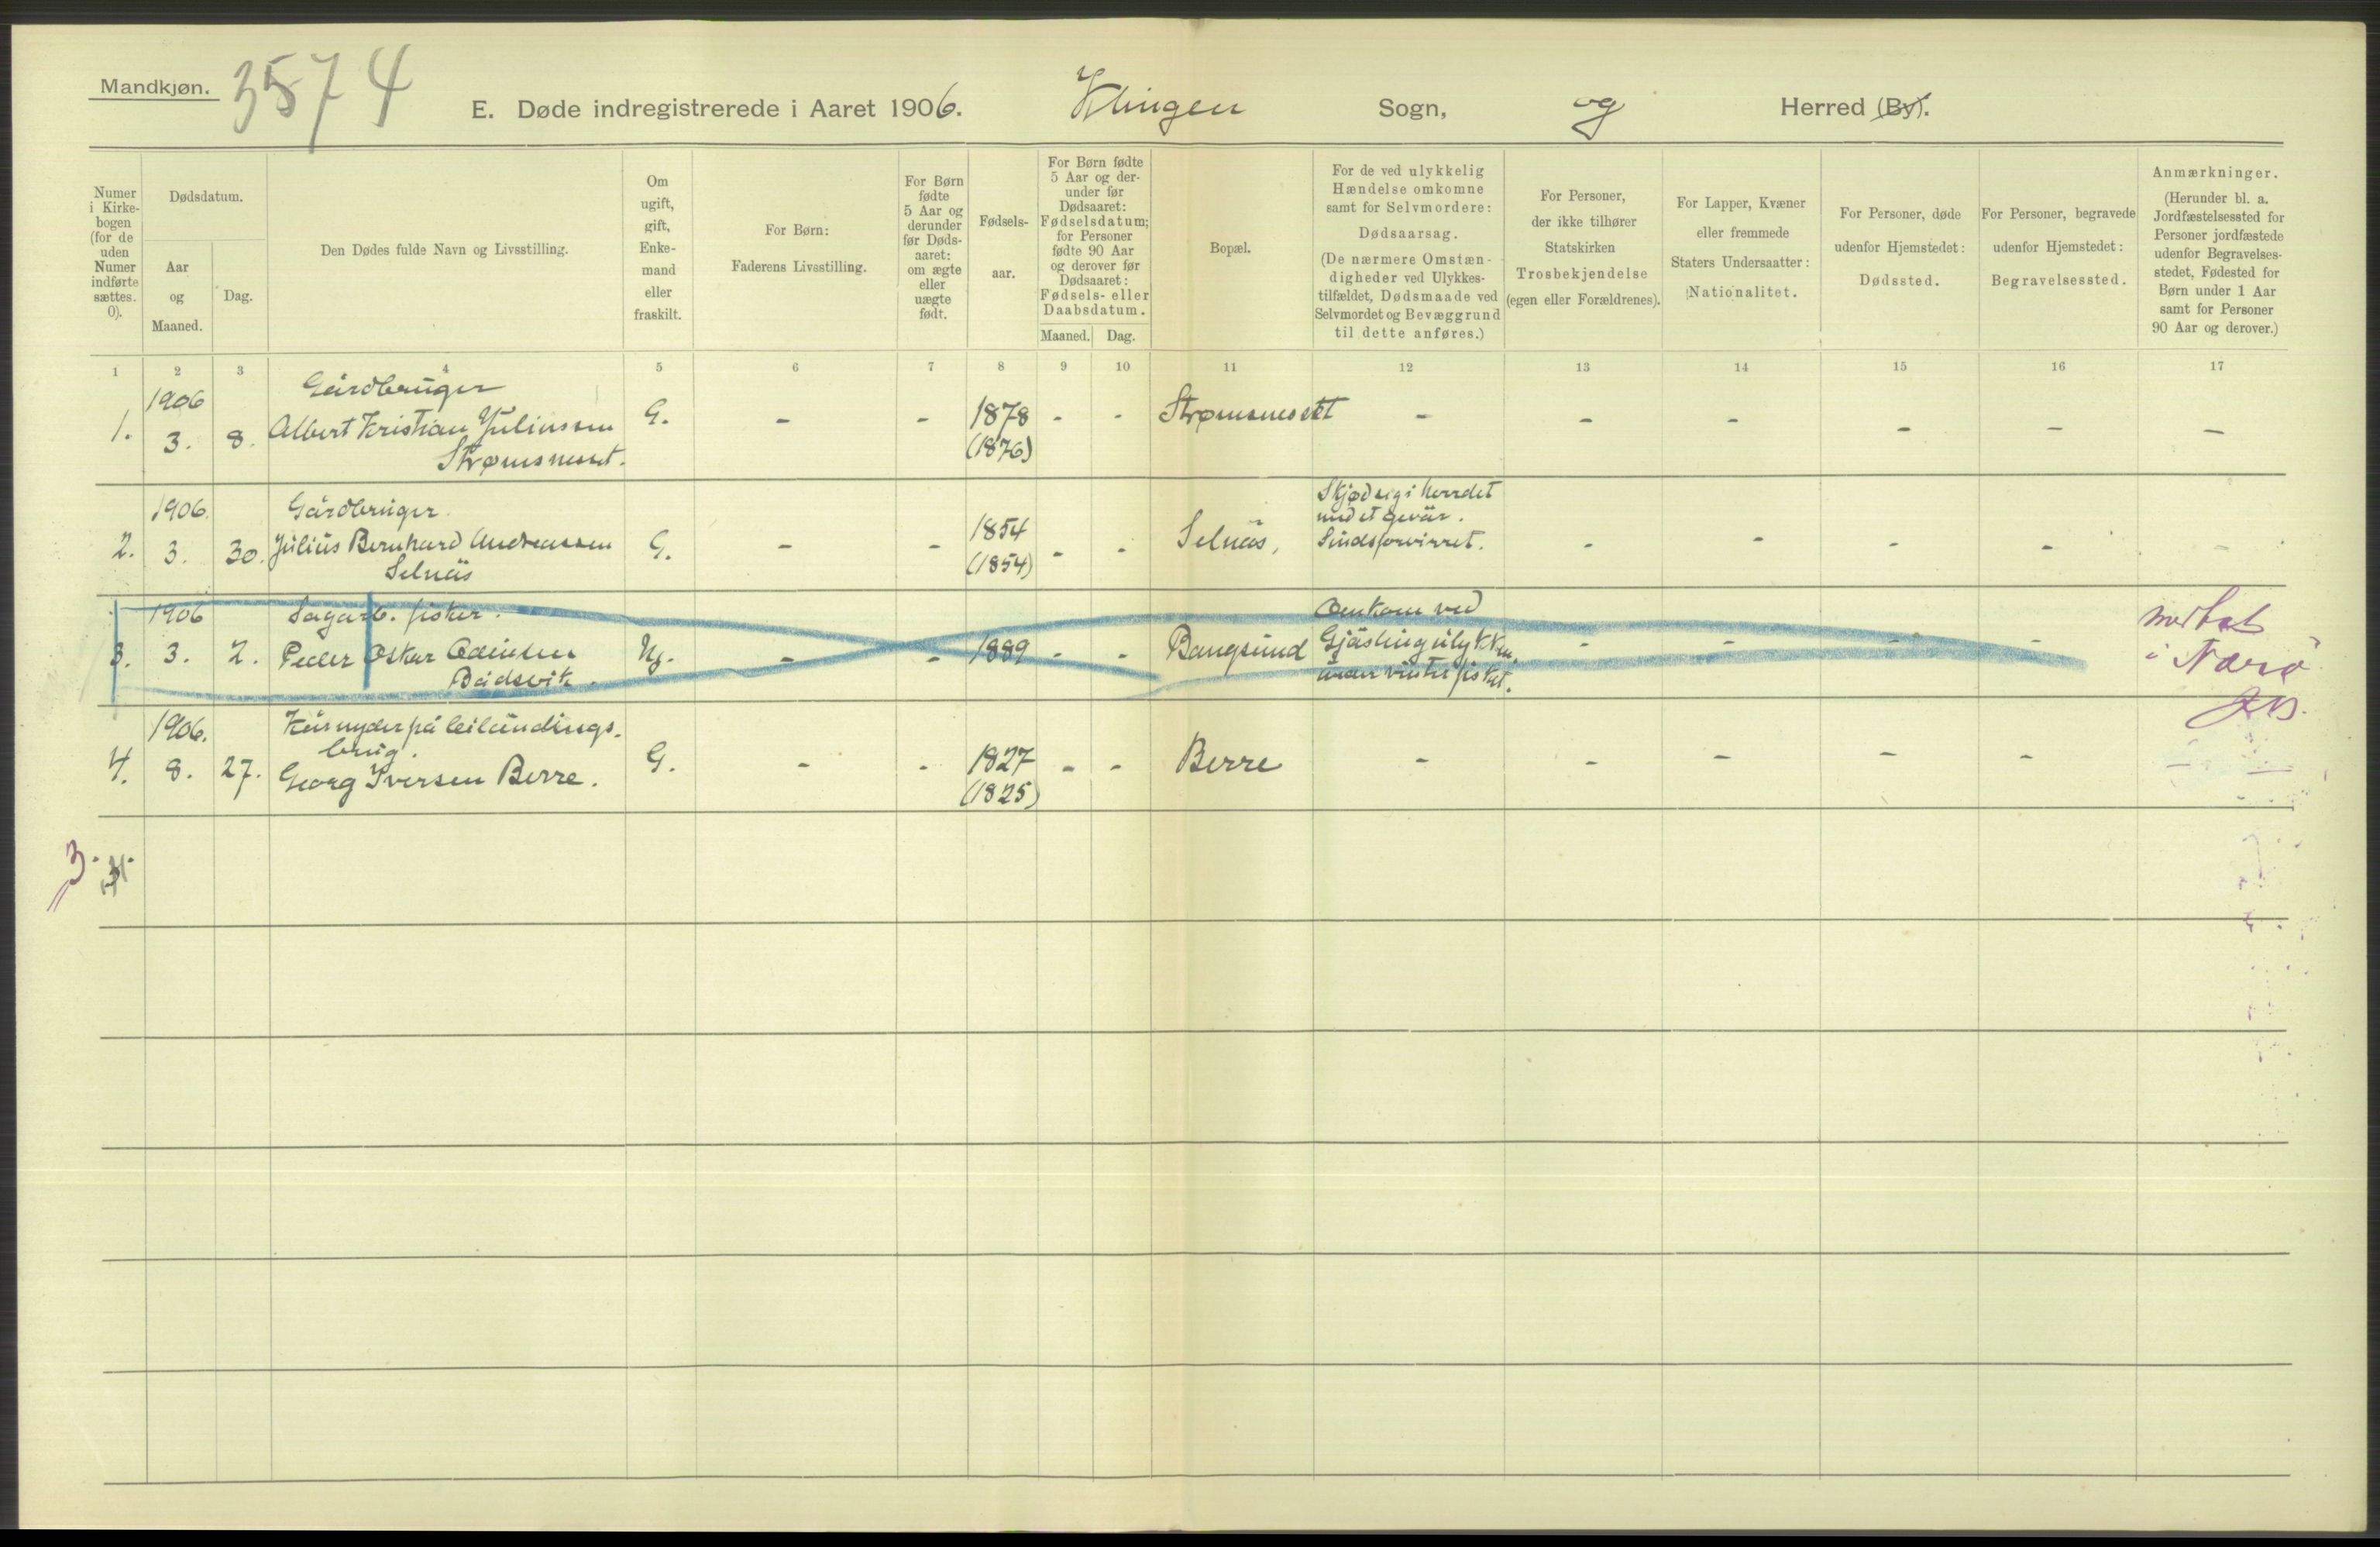 Mandkjøn.
3574
E. Døde indregistrerede i Aaret 1906. Klingen Sogn, og Herred (By).
Numer
i Kirke-
bogen
(for de
uden
Numer
indførte
sættes.
0).
Dødsdatum.
Aar
og
Maaned.
Dag.
Den Dødes fulde Navn og Livsstilling.
Om
ugift,
gift,
Enke-
mand
eller
fraskilt.
For Børn:
Faderens Livsstilling.
For Børn
fødte
5 Aar og
derunder
før Døds-
aaret:
om ægte
eller
uægte
født.
Fødsels-
aar.
For Børn fødte
5 Aar og der-
under før
Dødsaaret:
Fødselsdatum;
for Personer
fødte 90 Aar
og derover før
Dødsaaret:
Fødsels- eller
Daabsdatum.
Maaned. Dag.
Bopæl.
For de ved ulykkelig
Hændelse omkomne
samt for Selvmordere:
Dødsaarsag.
(De nærmere Omstæn-
digheder ved Ulykkes-
tilfældet, Dødsmaade ved
Selvmordet og Bevæggrund
til dette anføres.)
For Personer,
der ikke tilhører
Statskirken
Trosbekjendelse
(egen eller Forældrenes).
For Lapper, Kvæner
eller fremmede
Staters Undersaatter:
Nationalitet.
For Personer, døde
udenfor Hjemstedet:
Dødssted.
For Personer, begravede
udenfor Hjemstedet:
Begravelsessted.
Anmærkninger.
(Herunder bl. a.
Jordfæstelsessted for
Personer jordfæstede
udenfor Begravelses-
stedet, Fødested for
Børn under 1 Aar
samt for Personer
90 Aar og derover.)
1 2 3 4 5 6 7 8 9 10 11 12 13 14 15 16 17
1906 Gårdbruger
1. 3. 8. Albert Kristian Juliussen G. - - 1878 - - Strømsnesset - - - - - -
Strømsnesset. (1876)
1906. Gårdbruger. Skjød sig i hovedet
med et gevär.
2. 3. 30. Julius Bernhard Andreassen G. - - 1854 - - Selnäs, Sindsforvirret. - - - - -
Selnäs (1854)
1906 Sagarb. fisker. Omkom ved
3. 3. 2. Peder Oskar Odinsen Ug. - - 1889 - - Bangsund Gjäslingulykken - - - -
Bådsvik. under vinterfisket.
medtat
i Nærø
1906. Kårnyder på leilendings-
brug.
4. 8. 27. Georg Iversen Berre. G. - - 1827 - - Berre - - - - - -
(1825)
3.